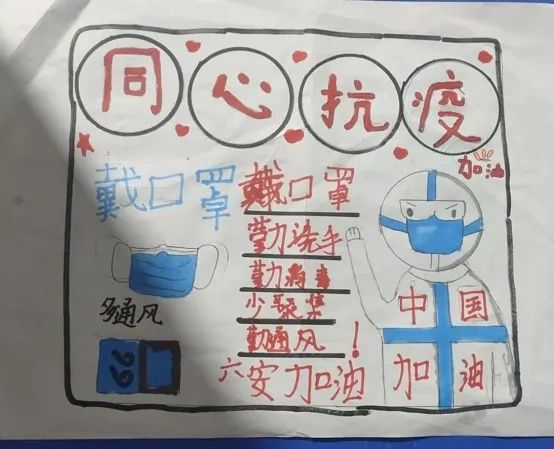 同心抗疫
加油
戴口罩
戴口罩
勤洗手
勤消毒
少聚集
勤通风!
多通风
六安加油
中国
加油